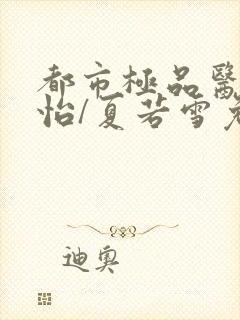 都市極品醫
怡/夏若雪
迪奧